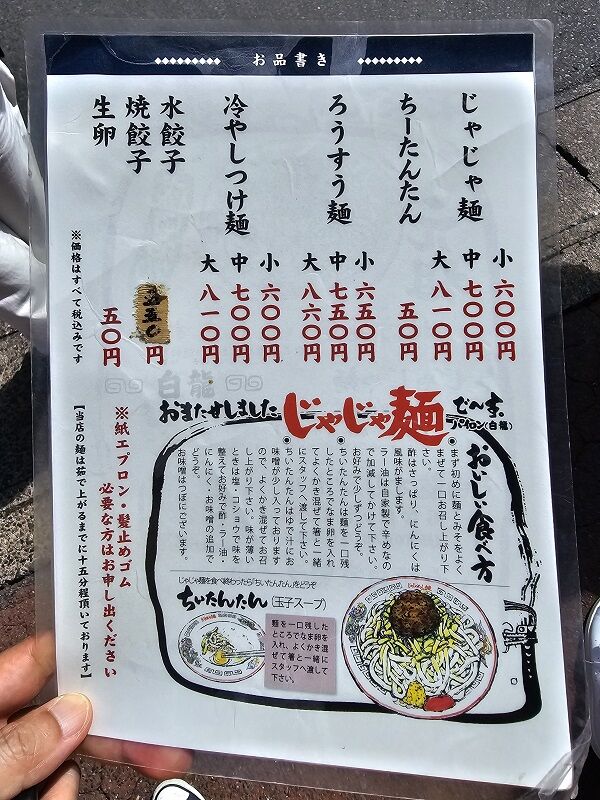 お品書き
じゃじゃ麺
小 六〇〇円
中 七〇〇円
大 八一〇円
ちーたんたん
五〇円
ろうすう麺
小 六五〇円
中 七五〇円
大 八六〇円
冷やしつけ麺
小 六〇〇円
中 七〇〇円
大 八一〇円
水餃子
焼餃子
円
生卵
五〇円
※価格はすべて税込みです
白龍
おまたせしました。じゃじゃ麺でーす。
パイロン(白龍)
※紙エプロン・髪止めゴム
必要な方はお申し出ください
【当店の麺は茹で上がるまでに十五分程頂いております】
おいしい食べ方
まず初めに麺とみそをよく
まぜて一口お召し上がり下
さい。
酢はさっぱり、にんにくは
風味がまします。
ラー油は自家製で辛めなの
で加減してかけて下さい。
お好みで少しずつどうぞ。
ちいたんたんは麺を一口残
したところでなま卵を入れ
てよくかき混ぜて箸と一緒
にスタッフへ渡して下さい。
ちいたんたんはゆで汁にお
味噌が少し入っております
ので、よくかき混ぜてお召
し上がり下さい。味が薄い
ときは塩・コショウで味を
整えてお好みで酢・ラー油・
にんにく、お味噌の追加で
どうぞ。
お味噌はつぼにございます。
じゃじゃ麺を食べ終わったら「ちいたんたん」をどうぞ
ちいたんたん(玉子スープ)
麺を一口残した
ところでなま卵を
入れ、よくかき混
ぜて箸と一緒に
スタッフへ渡して
下さい。